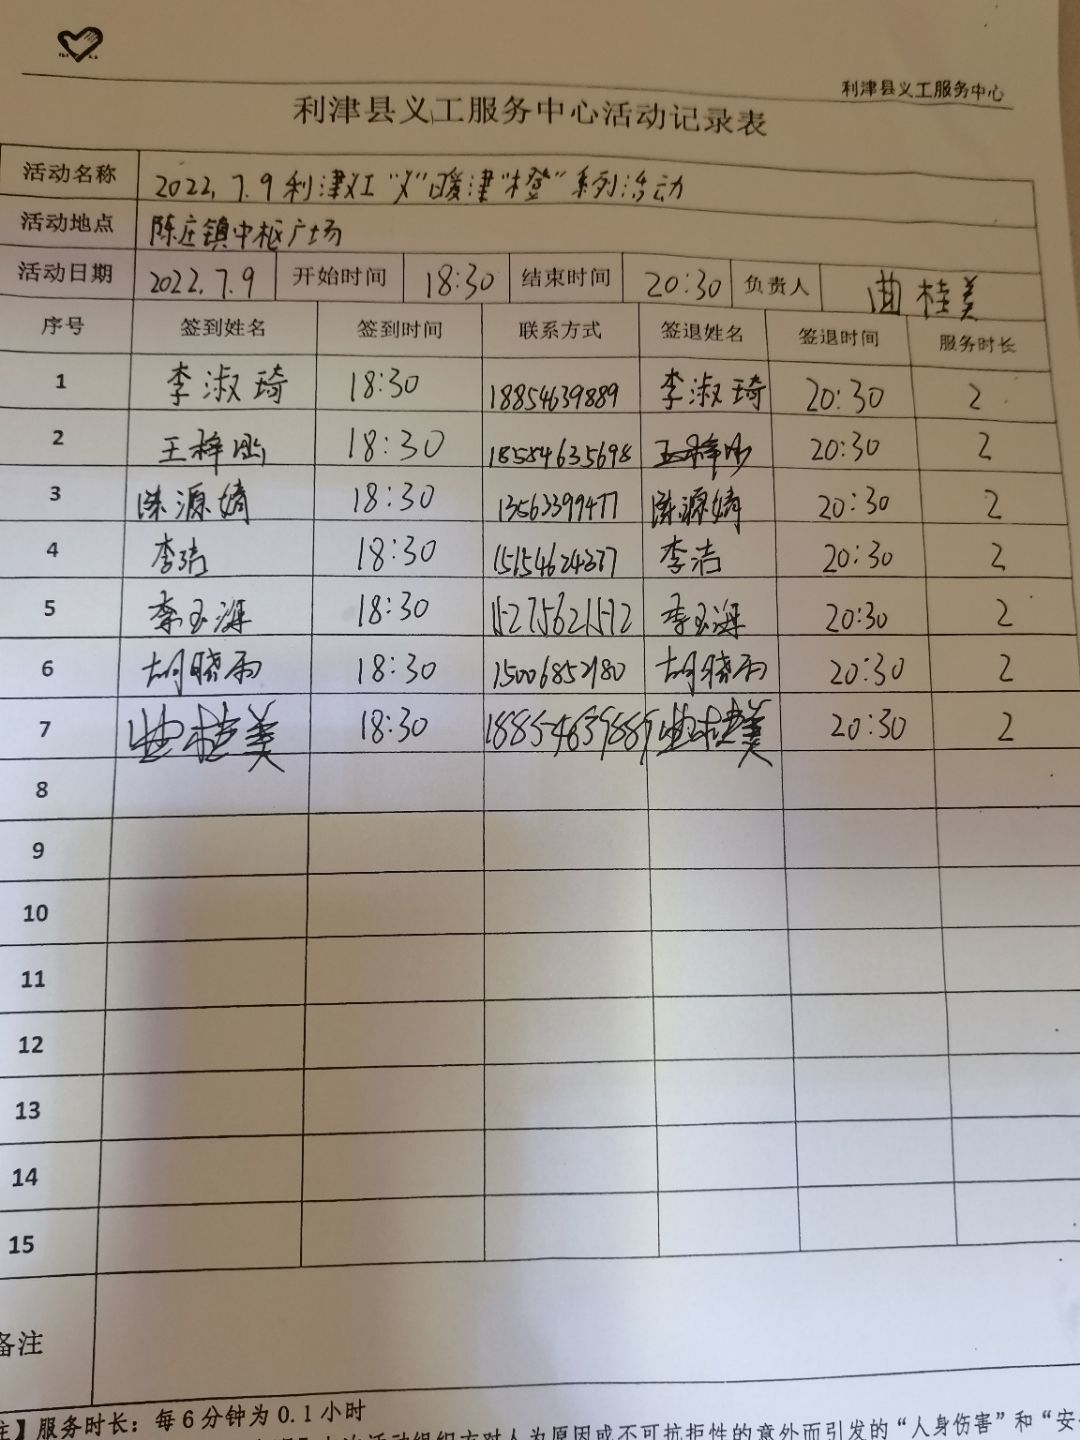 利津县义工服务中心
利津县义工服务中心活动记录表
活动名称 2022.7.9利津义工“义”暖津“橙”系列活动
活动地点 陈庄镇中枢广场
活动日期 2022.7.9 开始时间 18:30 结束时间 20:30 负责人 曲桂美
序号 签到姓名 签到时间 联系方式 签退姓名 签退时间 服务时长
1 李淑琦 18:30 18854639889 李淑琦 20:30 2
2 王梓 18:30 18584635698 王梓 20:30 2
3 陈源婍 18:30 13563399477 陈源婍 20:30 2
4 李洁 18:30 15154624377 李洁 20:30 2
5 李玉海 18:30 15275621572 李玉海 20:30 2
6 胡晓雨 18:30 15006852980 胡晓雨 20:30 2
7 曲桂美 18:30 18854639889 曲桂美 20:30 2
8
9
10
11
12
13
14
15
备注
注】服务时长：每6分钟为0.1小时
活动组织方对人为原因或不可抗拒性的意外而引发的“人身伤害”和“安